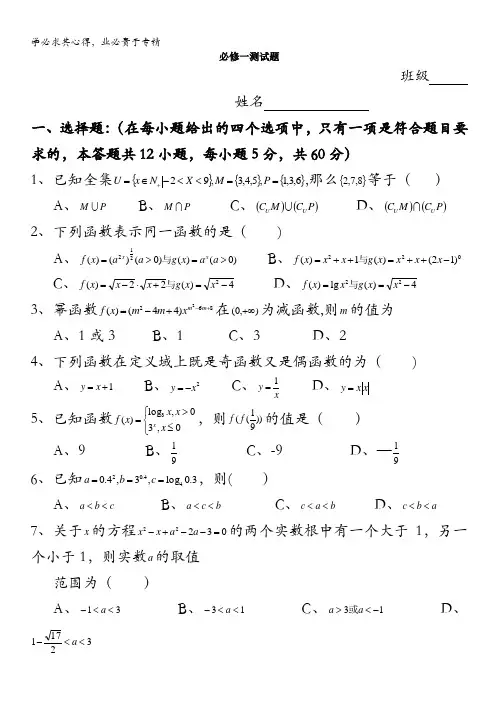 学必求其心得，业必贵于专精
必修一测试题
班级
姓名
一、选择题：（在每小题给出的四个选项中，只有一项是符合题目要
求的，本答题共12小题，每小题5分，共60分）
1、已知全集U={x∈N₊|-2<X<9},M={3,4,5},P={1,3,6},那么{2,7,8}等于（ ）
A、M∪P B、M∩P C、(C_U M)∪(C_U P) D、(C_U M)∩(C_U P)
2、下列函数表示同一函数的是（ ）
A、f(x)=(a^{2x})^{1/2}(a>0)与g(x)=a^x(a>0) B、f(x)=x²+x+1与g(x)=x²+x+(2x-1)⁰
C、f(x)=√(x-2)·√(x+2)与g(x)=√(x²-4) D、f(x)=lg x²与g(x)=√(x²-4)
3、幂函数f(x)=(m²-4m+4)x^{m²-6m+8}在(0,+∞)为减函数,则m的值为
A、1或3 B、1 C、3 D、2
4、下列函数在定义域上既是奇函数又是偶函数的为（ ）
A、y=x+1 B、y=-x² C、y=1/x D、y=x|x|
5、已知函数f(x)={log₃x,x>0 3^x,x≤0，则f(f(1/9))的值是（ ）
A、9 B、1/9 C、-9 D、—1/9
6、已知a=0.4²,b=3^{0.4},c=log₄0.3，则( ）
A、a<b<c B、a<c<b C、c<a<b D、c<b<a
7、关于x的方程x²-x+a²-2a-3=0的两个实数根中有一个大于1，另一
个小于1，则实数a的取值
范围为（ ）
A、-1<a<3 B、-3<a<1 C、a>3或a<-1 D、
(1-√17)/2<a<3